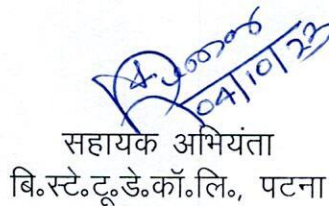 04/10/22
सहायक अभियंता
बि॰स्टे॰टू॰डे॰कॉ॰लि॰, पटना